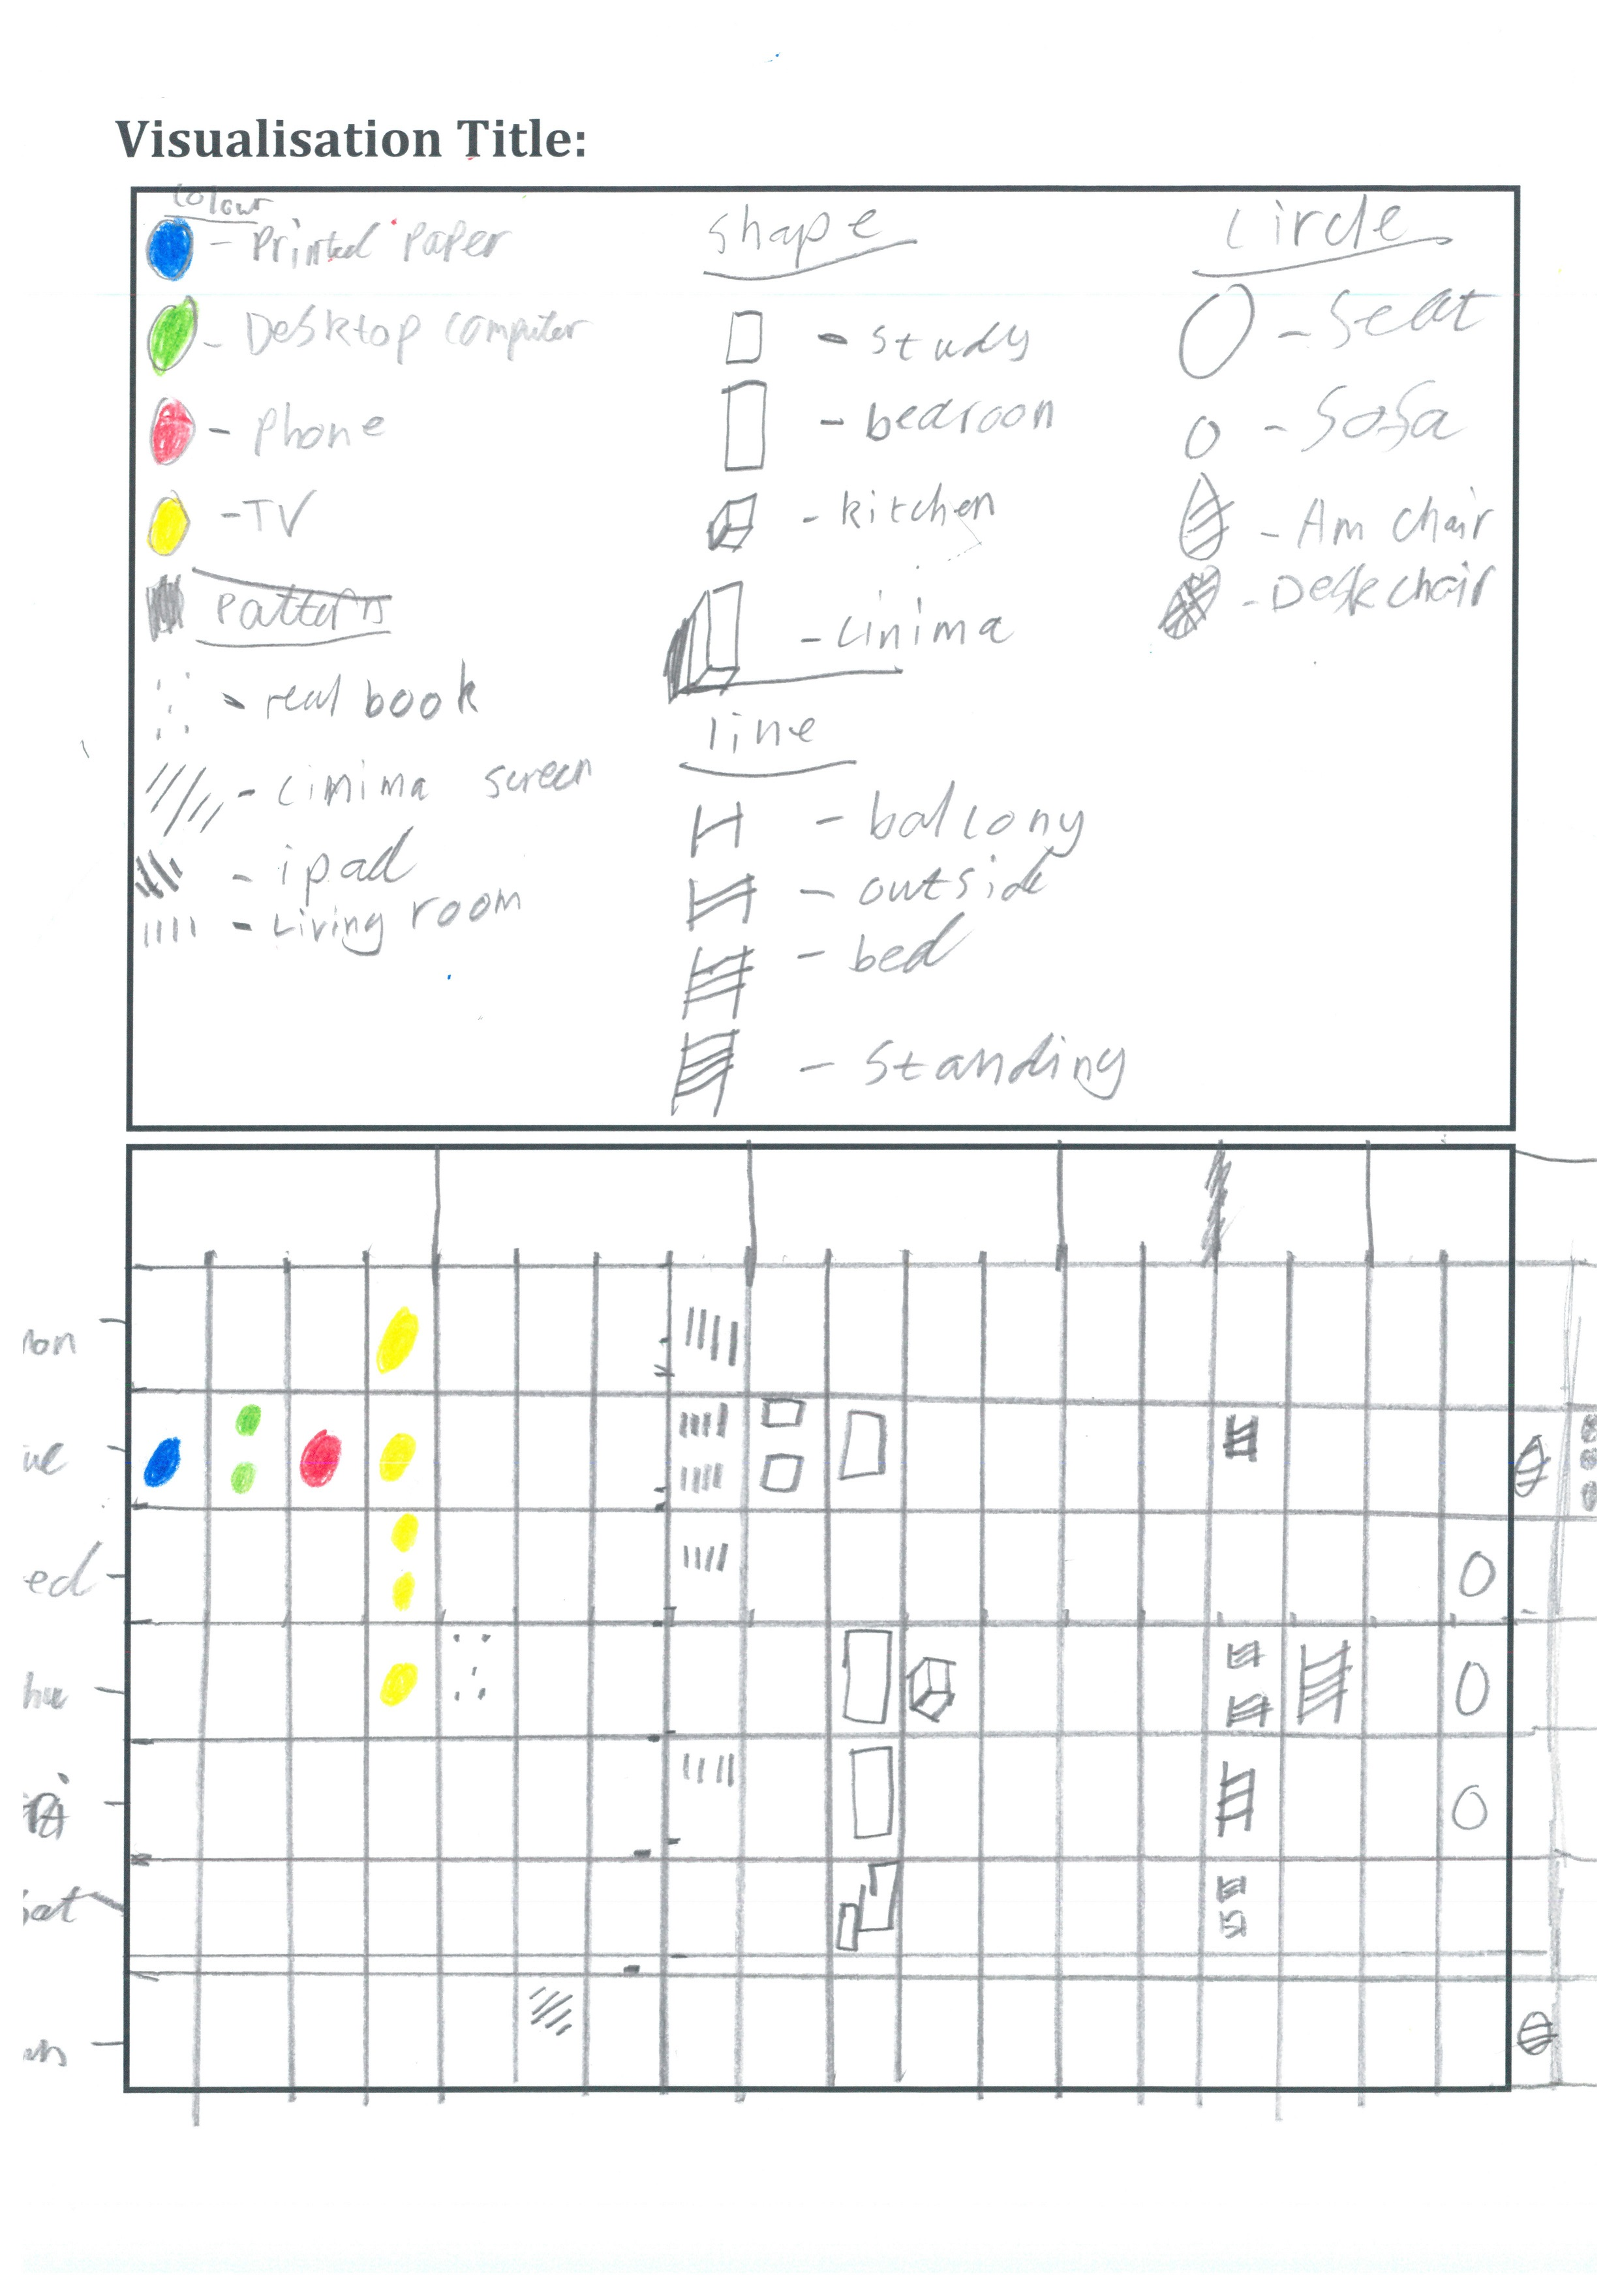 Visualisation Title:
Colour
- Printed Paper
- Desktop computer
- Phone
- TV
Pattern
- real book
- cinima screen
- ipad
- Living room
Shape
- study
- bedroon
- kitchen
- cinima
line
- balcony
- outside
- bed
- Standing
Circle
- Seat
- Sofa
- Am chair
- Desk chair
mon
ue
ed
hu
sat